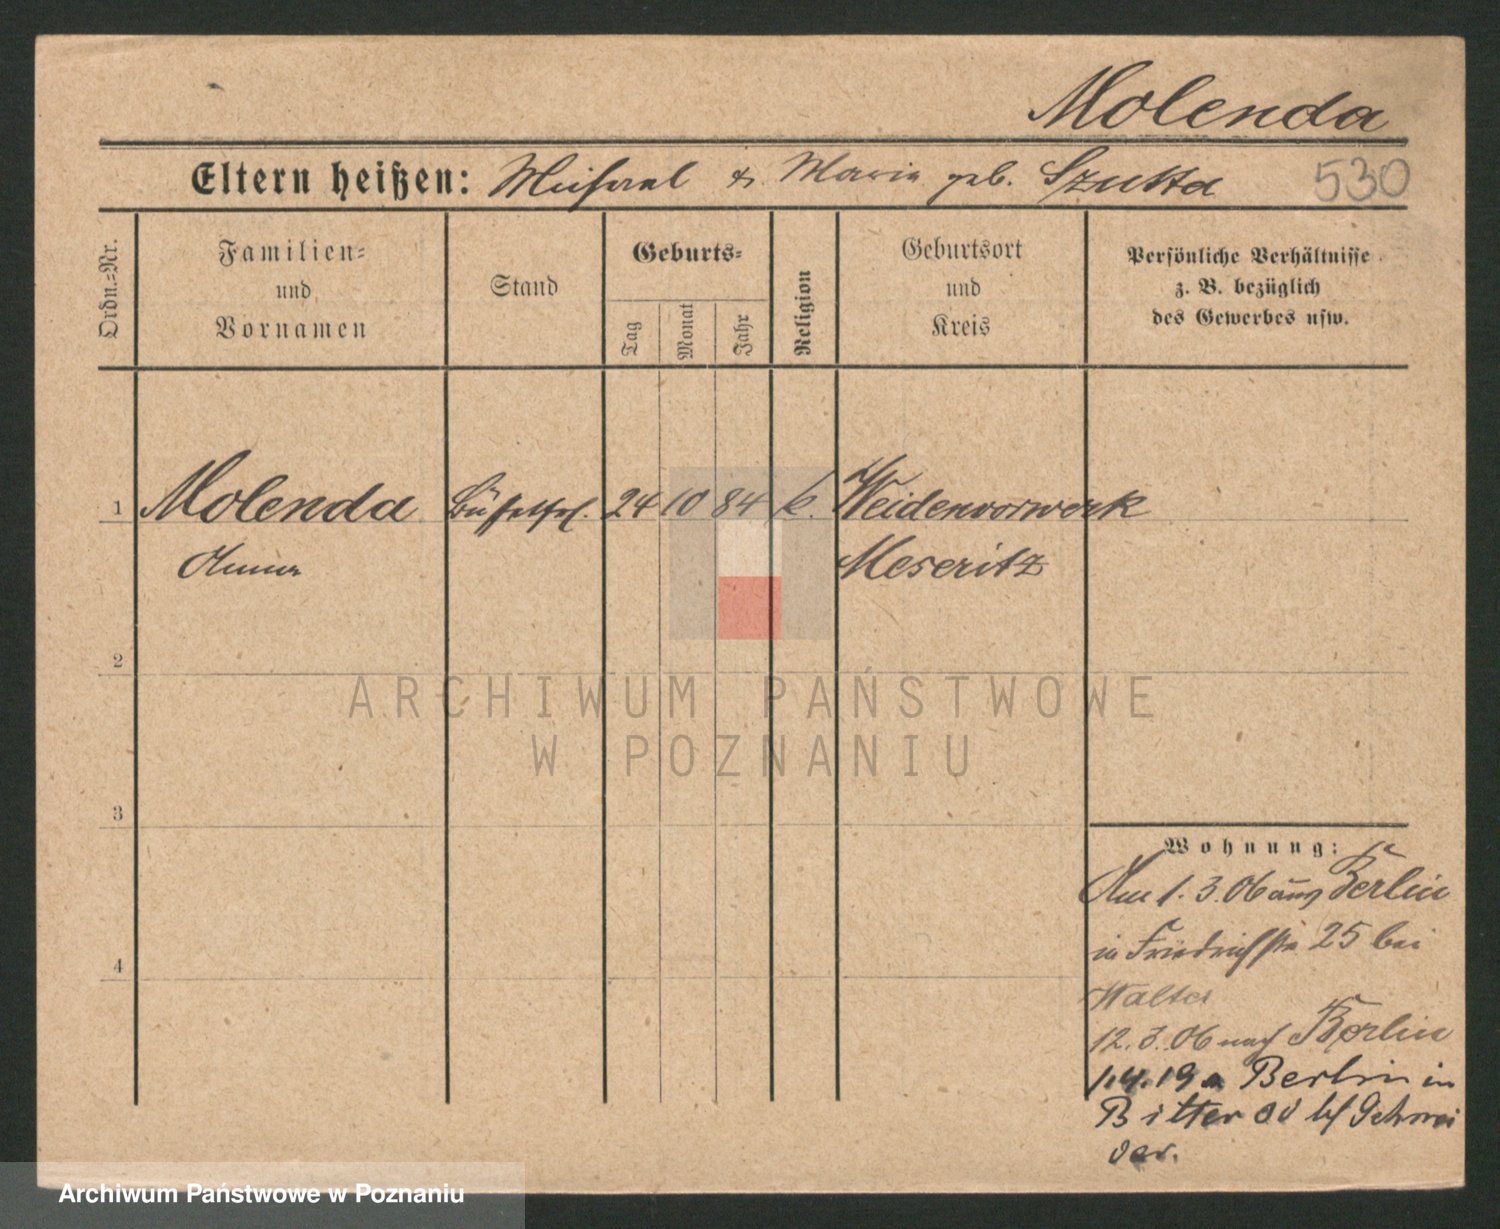 Molenda
Eltern heißen: Michael & Marie geb. Szukta
530
Ordn.-Nr.
Familien-
und
Vornamen
Stand
Geburts-
Tag
Monat
Jahr
Religion
Geburtsort
und
Kreis
Persönliche Verhältnisse
z. B. bezüglich
des Gewerbes usw.
1 Molenda Büfettfrl. 24 10 84 k. Weidenvorwerk
Anna Meseritz
2
3
4
ARCHIWUM PAŃSTWOWE
W POZNANIU
Wohnung:
Am 1. 3. 06 aus Berlin
in Friedrichstr 25 bei
Walter
12. 3. 06 nach Berlin
1.4.19 a Berlin in
Bitter b/ Schnei
der.
Archiwum Państwowe w Poznaniu